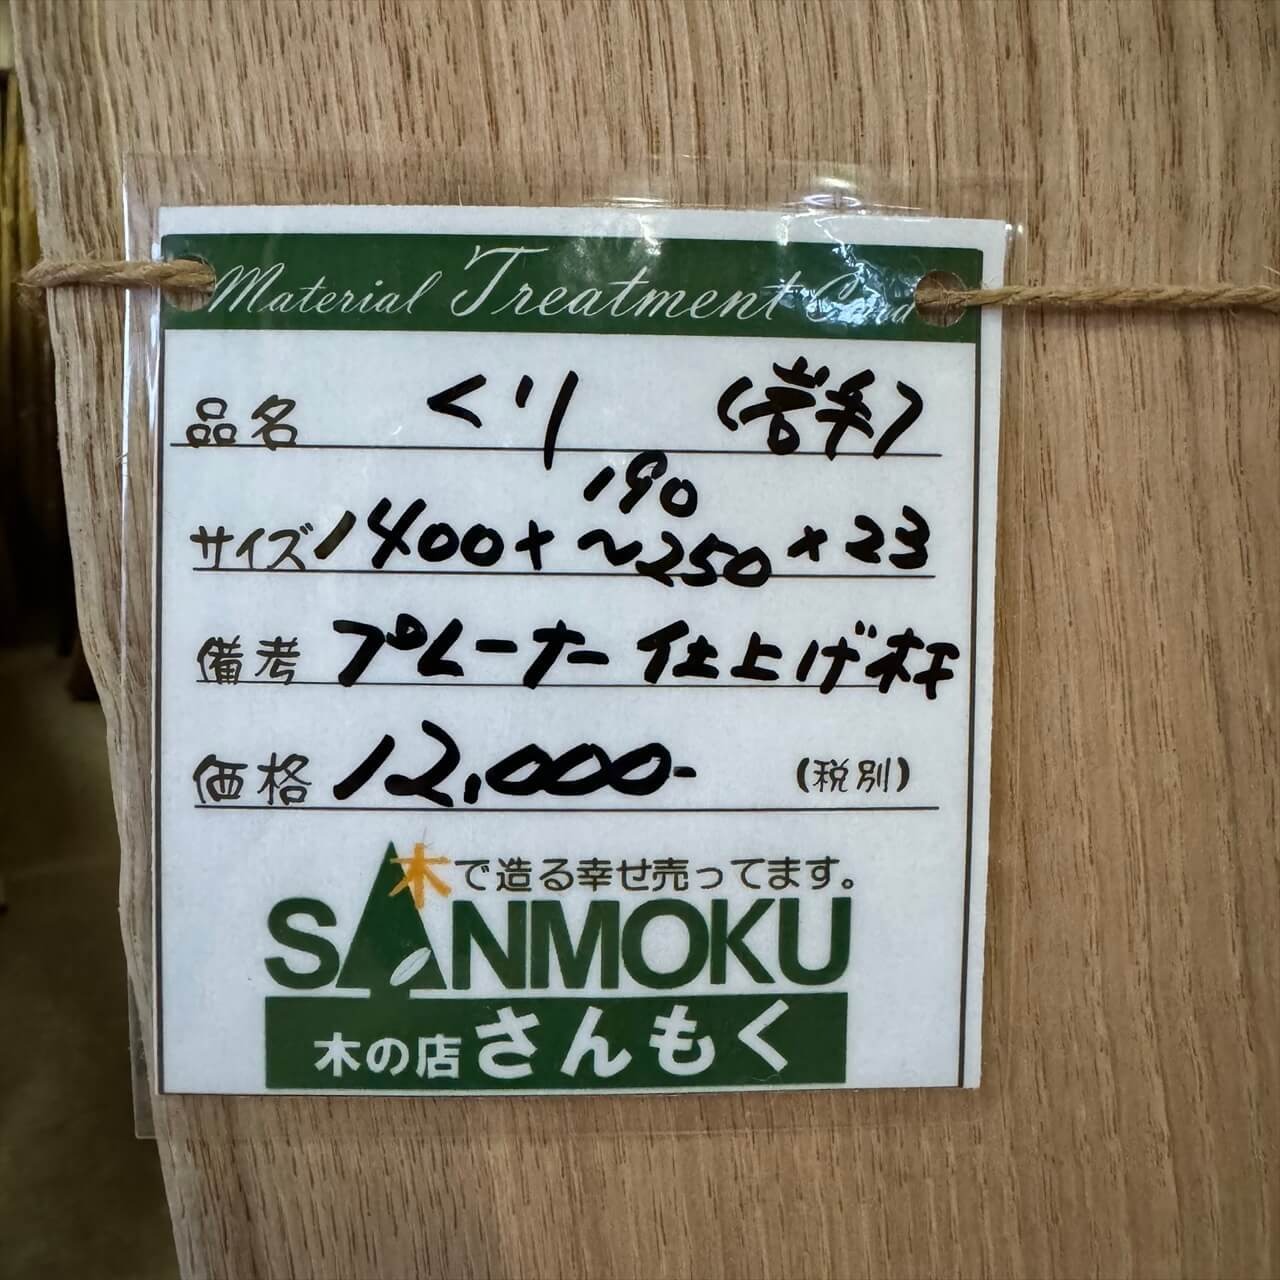 Material Treatment Card
品名 くり (岩手)
190
サイズ 1400×~250×23
備考 プレーナー仕上げ材
価格 12,000- (税別)
木で造る幸せ売ってます。
SANMOKU
木の店さんもく